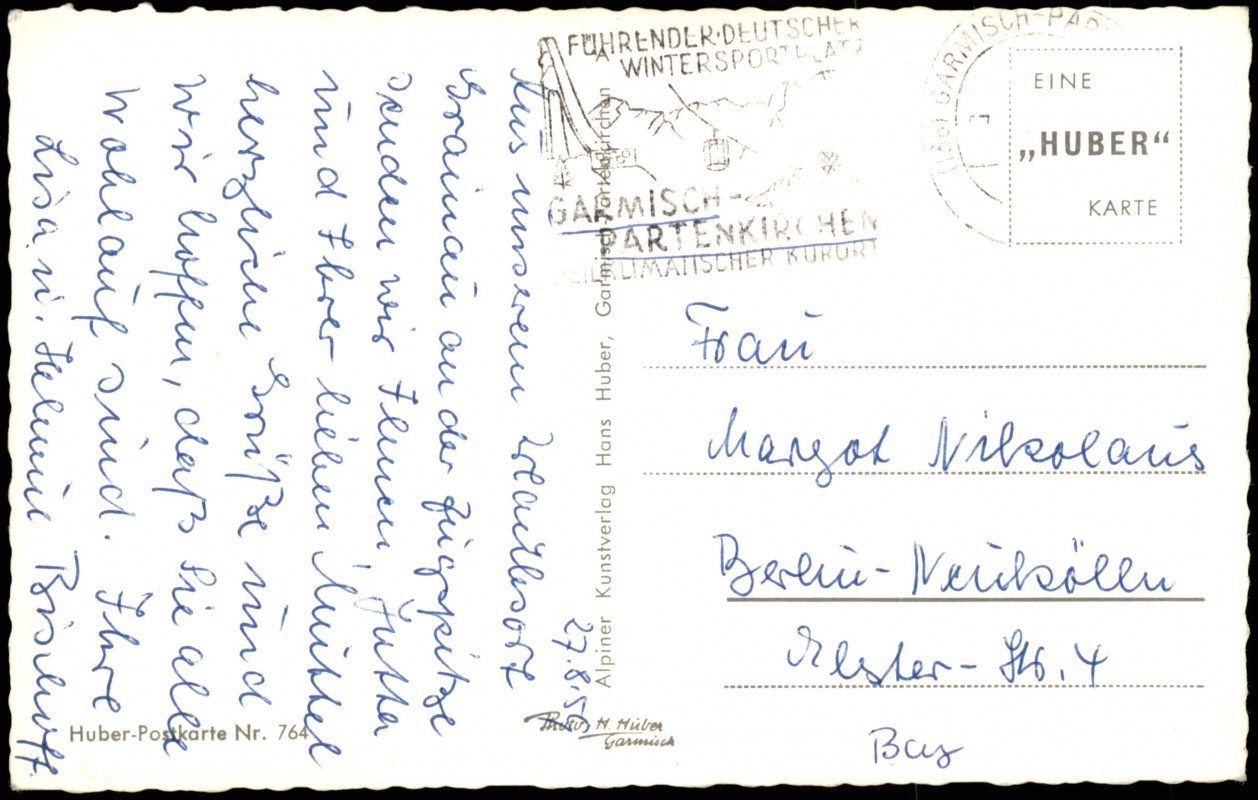 27.8.56
Aus unserem Urlaubsort
Grainau an der Zugspitze
senden wir Ihnen, Jutta
und Ihrer lieben Mutter
herzliche Grüße und
wir hoffen, daß Sie alle
wohlauf sind. Ihre
Lisa u. Helmut Bischoff.
Huber-Postkarte Nr. 764
Photo H. Huber
Garmisch
Alpiner Kunstverlag Hans Huber, Garmisch-Partenkirchen
FÜHRENDER DEUTSCHER
WINTERSPORTPLATZ
GARMISCH-
PARTENKIRCHEN
HEILKLIMATISCHER KURORT
GARMISCH-PAR
EINE
„HUBER“
KARTE
Frau
Margot Nikolaus
Berlin-Neukölln
Elster-Str. 4
Bay